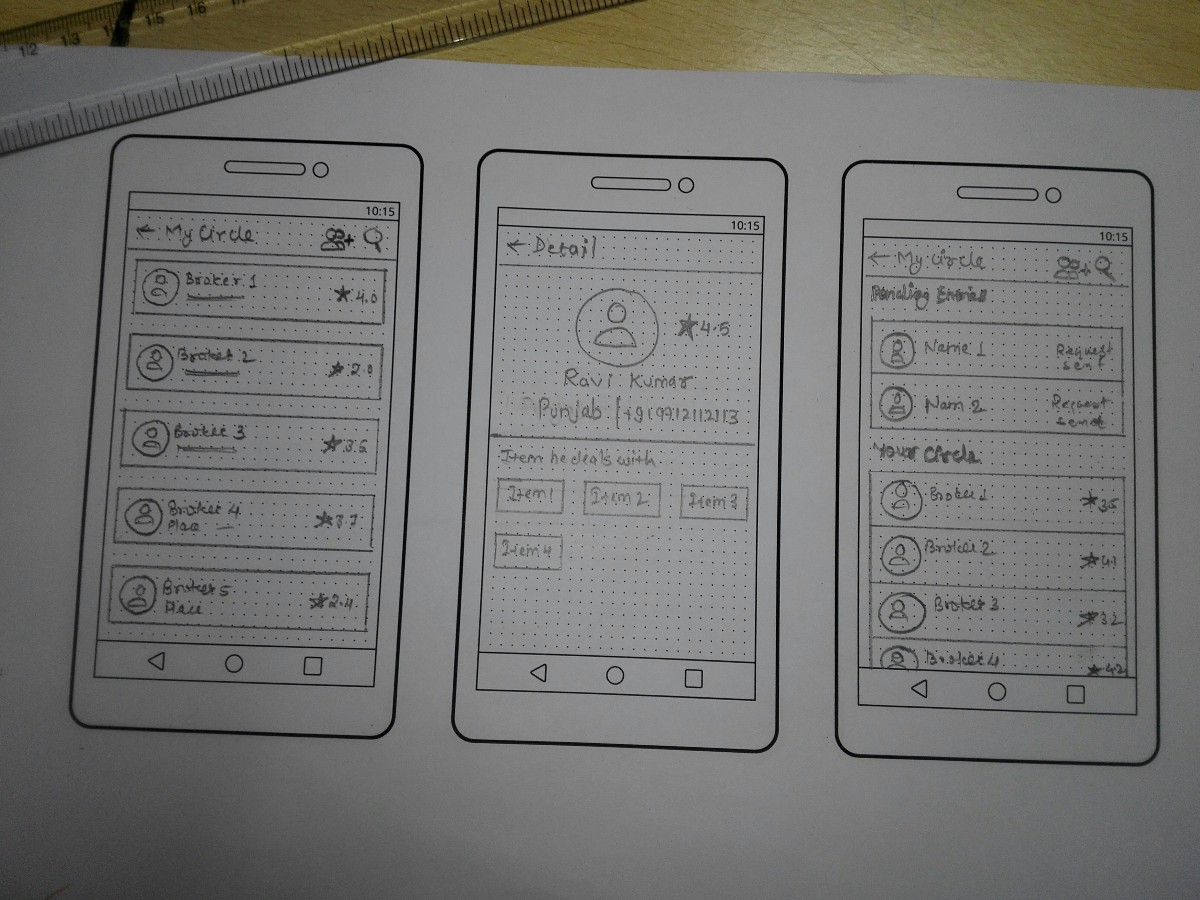 12 13 14 15 16 17
10:15
My Circle
Broker 1
4.0
Broker 2
2.0
Broker 3
3.5
Broker 4
Place
3.7
Broker 5
Place
2.4
10:15
Detail
4.5
Ravi Kumar
Punjab
Item he deals with
Item 1 Item 2 Item 3
Item 4
10:15
My Circle
Pending
Name 1
Request
sent
Nam 2
Request
Your Circle
Broker 1
3.5
Broker 2
4.1
Broker 3
3.2
Broker 4
4.2